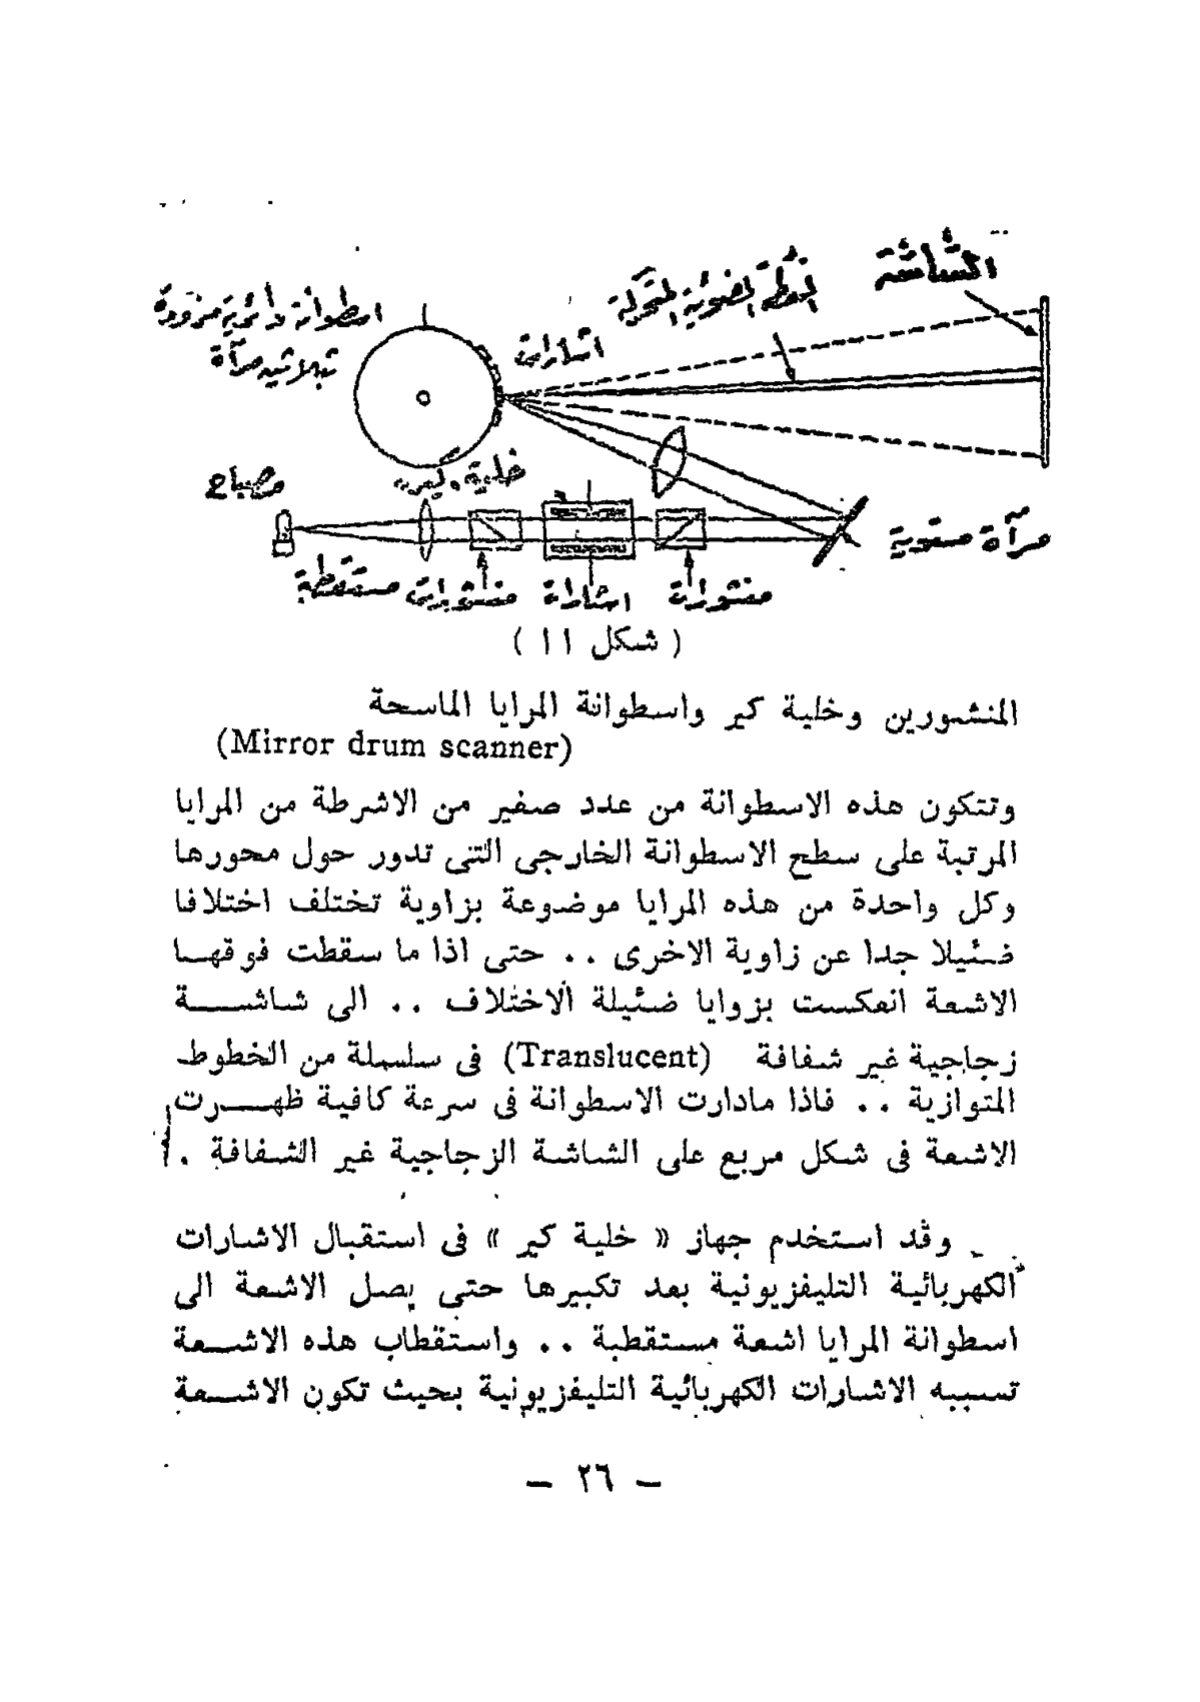 الشاشة
النقطة المضوئية المتحركة
اسطوانة دائرية مزودة
بثلاثين مرآة
اشارات
خلية
مصباح
مرآة مستوية
منشورات
اشارات
منشورات
مستقطبة
( شكل ١١ )
المنشورين وخلية كير واسطوانة المرايا الماسحة
(Mirror drum scanner)
وتتكون هذه الاسطوانة من عدد صغير من الاشرطة من المرايا
المرتبة على سطح الاسطوانة الخارجى التى تدور حول محورها
وكل واحدة من هذه المرايا موضوعة بزاوية تختلف اختلافا
ضئيلا جدا عن زاوية الاخرى .. حتى اذا ما سقطت فوقهــا
الاشعة انعكست بزوايا ضئيلة الاختلاف .. الى شاشــــة
زجاجية غير شفافة (Translucent) فى سلسلة من الخطوط
المتوازية .. فاذا مادارت الاسطوانة فى سرعة كافية ظهــــرت
الاشعة فى شكل مربع على الشاشة الزجاجية غير الشفافة .
وقد استخدم جهاز « خلية كير » فى استقبال الاشارات
الكهربائية التليفزيونية بعد تكبيرها حتى يصل الاشعة الى
اسطوانة المرايا اشعة مستقطبة .. واستقطاب هذه الاشــعة
تسببه الاشارات الكهربائية التليفزيونية بحيث تكون الاشــعة
— ٢٦ —